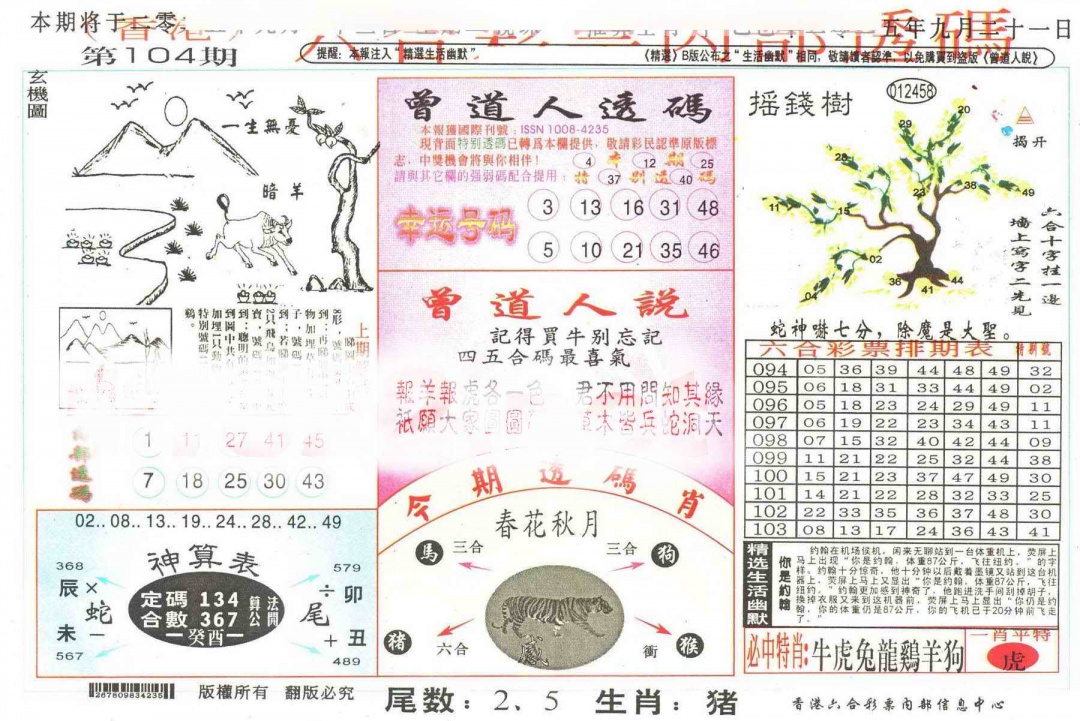 本期将于二零
五年九月二十一日
第104期
提醒：本報注入“精選生活幽默”
《精選》B版公布之“生活幽默”相同，敬請讀者認準，以免購買到盜版《曾道人說》
玄機圖
一生無憂
暗羊
1 11 27 41 45
7 18 25 30 43
02..08..13..19..24..28..42..49
神算表
368
579
辰×
÷卯
蛇
尾
未－
＋丑
567
489
定碼 134
合數 367
算公
法開
癸酉
曾道人透碼
本報獲國際刊號：ISSN 1008-4235
現背面特别透碼已轉爲本欄提供，敬請彩民認準原版標
志，中獎機會將與你相伴！
請與其它欄的强弱碼配合提用：
4 本 12 期 25
特 37 别 透 40 碼
幸运号码
3 13 16 31 48
5 10 21 35 46
曾道人説
記得買牛别忘記
四五合碼最喜氣
報羊報虎各一色
君不用問知其緣
祇願大家圓圓
草木皆兵蛇洞天
今期透碼肖
春花秋月
馬
三合
三合
狗
豬
六合
衝
猴
摇錢樹
012458
揭开
20
29
28
23
38
49
11
15
02
04
36
41
44
六合十字挂一邊
墙上寫字二先見
蛇神啉七分，除魔是大聖。
六合彩票排期表 特期號
094 05 36 39 44 48 49 32
095 06 18 31 33 44 49 02
096 05 18 23 24 29 49 11
097 06 19 22 23 34 43 11
098 07 15 32 40 42 44 09
099 11 21 22 25 32 44 38
100 15 21 23 37 47 49 30
101 14 21 22 28 32 33 25
102 22 33 35 36 37 48 30
103 08 13 17 24 36 43 41
精选生活幽默
你是約翰
约翰在机场侯机，闲来无聊站到一台体重机上，荧屏上
马上出现“你是约翰，体重87公斤，飞往纽约。”的字
样。约翰十分惊奇，他十分钟以后戴着墨镜又站到这台机
器上，荧屏上马上又显出“你是约翰，体重87公斤，飞往
纽约。”约翰更加感到神奇了，他跑进洗手间刮掉胡子，
换掉衣服又来到这机器前，荧屏上马上显出“你仍是约
翰，你的体重仍是87公斤，你的飞机已于20分钟前飞走
了。”
必中特肖：牛虎兔龍鷄羊狗
一肖平特
虎
版權所有 翻版必究
尾数：2、5 生肖：猪
香港六合彩票内部信息中心